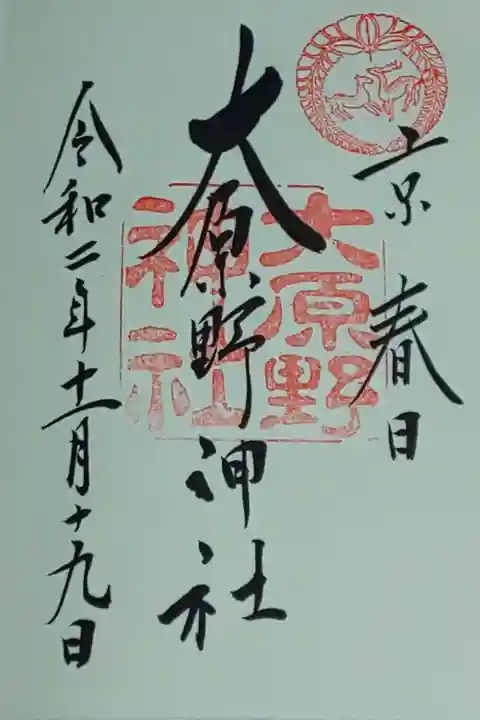 京春日
大原野神社
大原野
神社
令和二年十一月十九日